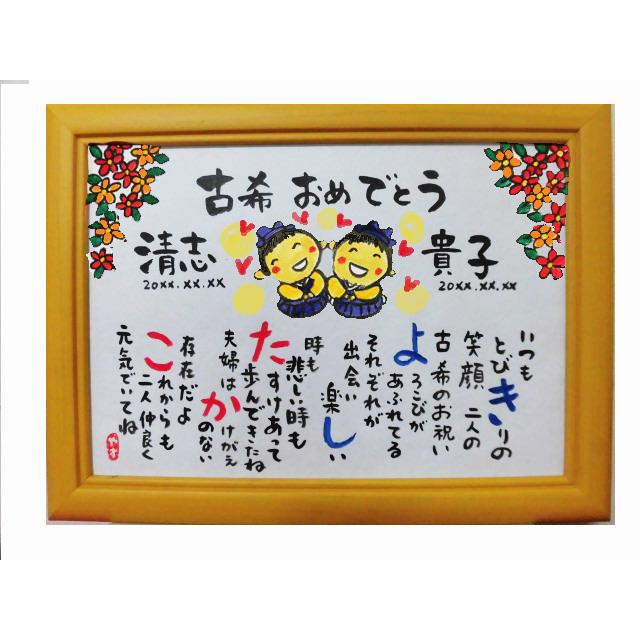 古希 おめでとう
清志
20xx.xx.xx
貴子
20xx.xx.xx
いつも
とびきりの
笑顔 二人の
古希のお祝い
よろこびが
あふれてる
それぞれが
出会い
楽しい
時も
悲しい時も
たすけあって
歩んできたね
夫婦は かけがえ
のない
存在だよ
これからも
二人仲良く
元気でいてね